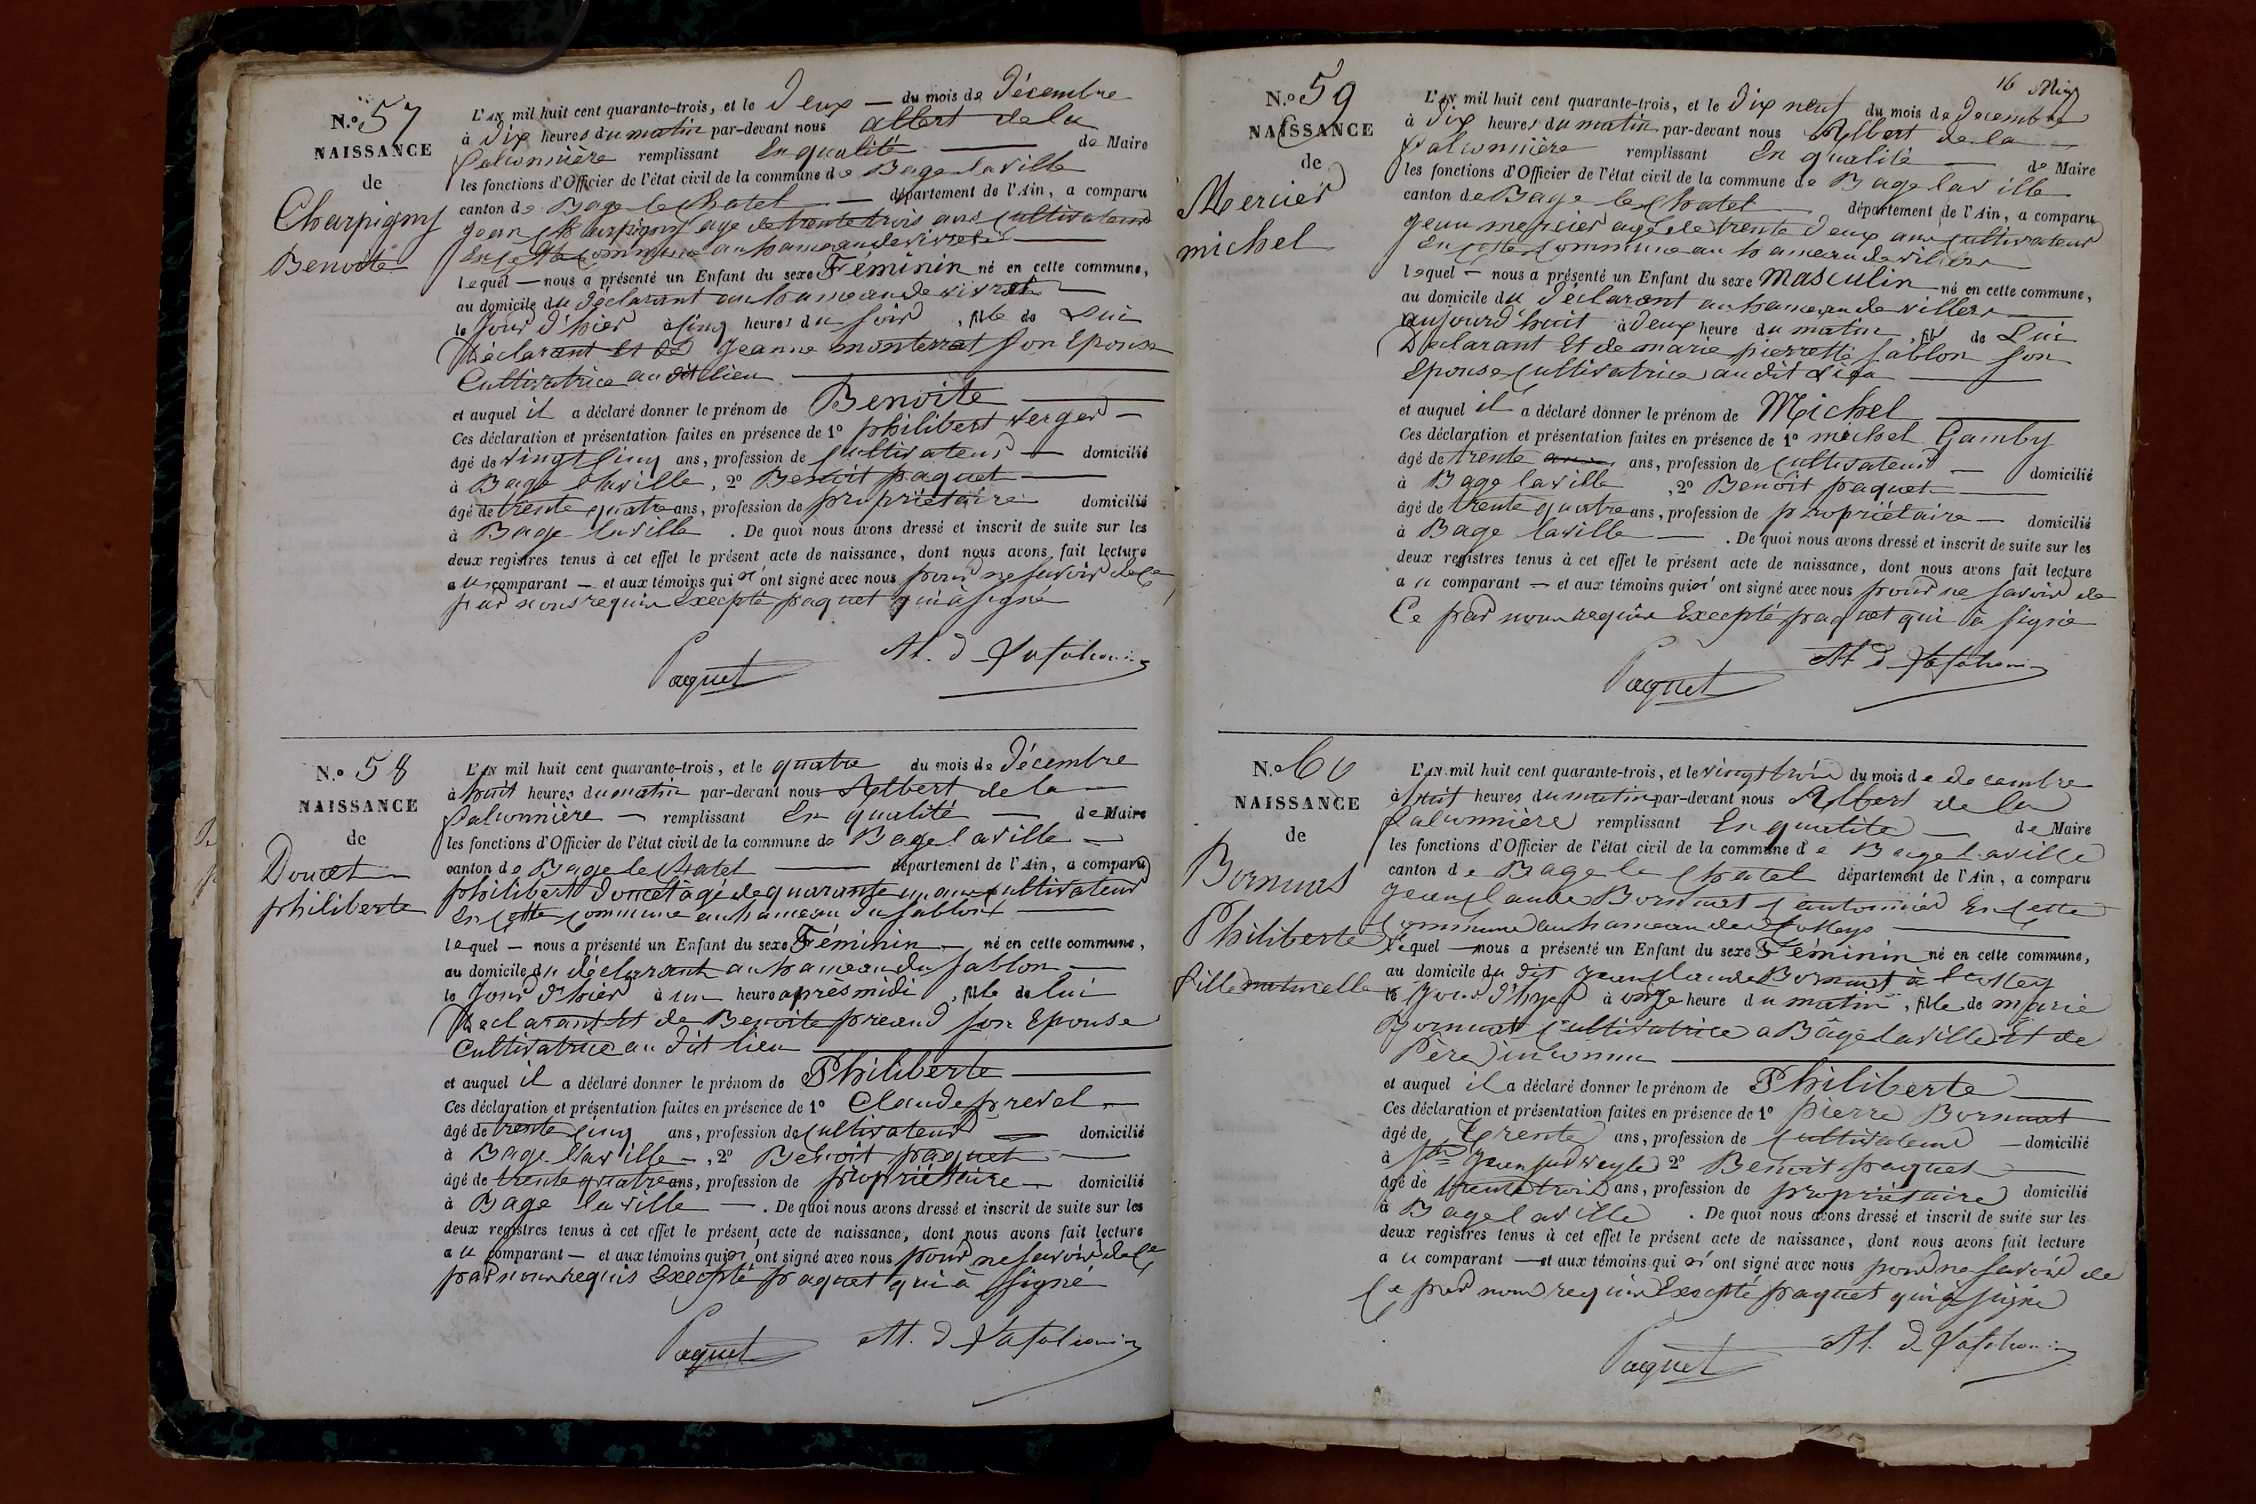 N.º 57
NAISSANCE
de
Charpigny
Benoite
L'AN mil huit cent quarante-trois, et le Deux — du mois de Décembre
à Dix heures du matin par-devant nous albert de la
falconnière remplissant En qualité — de Maire
les fonctions d'Officier de l'état civil de la commune de Bage la ville
canton de Bage le Chatel — département de l'Ain, a comparu
Jean Charpigny agé de trente trois ans Cultivateur
En Cette Commune au hameau de
lequel — nous a présenté un Enfant du sexe Féminin né en cette commune,
au domicile du Déclarant au hameau de
le Jour d'hier à Cinq heures du soir, fille de Lui
Déclarant Et de Jeanne monterrat son Epouse
Cultivatrice au dit lieu
et auquel il a déclaré donner le prénom de Benoite
Ces déclaration et présentation faites en présence de 1º philibert verger —
âgé de vingt Cinq ans, profession de Cultivateur — domicilié
à Bage la ville, 2º Benoit paquet
âgé de trente quatre ans, profession de propriétaire domicilié
à Bage la ville. De quoi nous avons dressé et inscrit de suite sur les
deux registres tenus à cet effet le présent acte de naissance, dont nous avons fait lecture
au comparant — et aux témoins qui n'ont signé avec nous pour ne savoir de Ce
par nous requis Excepté paquet qui à signé
Paquet
N.º 58
NAISSANCE
de
Doucet
philiberte
L'AN mil huit cent quarante-trois, et le quatre du mois de Décembre
à huit heures du matin par-devant nous Albert de la
falconnière — remplissant En qualité — de Maire
les fonctions d'Officier de l'état civil de la commune de Bage la ville —
canton de Bage le Chatel — département de l'Ain, a comparu
philibert Doucet âgé de quarante un ans Cultivateur
En Cette Commune au hameau du sablon
lequel — nous a présenté un Enfant du sexe Féminin — né en cette commune,
au domicile du déclarant au hameau du sablon
le Jour d'hier à un heure après midi, fille de lui
Declarant Et de Benoite son Epouse
Cultivatrice au dit lieu
et auquel il a déclaré donner le prénom de Philiberte
Ces déclaration et présentation faites en présence de 1º Claude prevel
âgé de trente Cinq ans, profession de Cultivateur — domicilié
à Bage la ville —, 2º Benoit paquet
âgé de trente quatre ans, profession de propriétaire — domicilié
à Bage la ville —. De quoi nous avons dressé et inscrit de suite sur les
deux registres tenus à cet effet le présent acte de naissance, dont nous avons fait lecture
au comparant — et aux témoins qui n'ont signé avec nous pour ne savoir de Ce
par nous requis Excepté paquet qui à signé
Paquet
16
N.º 59
NAISSANCE
de
Mercier
michel
L'AN mil huit cent quarante-trois, et le Dix neuf du mois de Decembre
à Dix heures du matin par-devant nous Albert de la
falconnière remplissant En qualité — de Maire
les fonctions d'Officier de l'état civil de la commune de Bage la ville
canton de Bage le Chatel département de l'Ain, a comparu
Jean mercier agé de trente Deux ans Cultivateur
En Cette Commune au hameau de
lequel — nous a présenté un Enfant du sexe Masculin né en cette commune,
au domicile du Déclarant au hameau de
aujourd'huit à Deux heure du matin, fils de Lui
Declarant Et de marie pierrette sablon son
Epouse Cultivatrice au dit Lieu
et auquel il a déclaré donner le prénom de Michel
Ces déclaration et présentation faites en présence de 1º michel Gamby
âgé de trente ans, profession de Cultivateur — domicilié
à Bage la ville, 2º Benoit paquet
âgé de trente quatre ans, profession de propriétaire — domicilié
à Bage la ville —. De quoi nous avons dressé et inscrit de suite sur les
deux registres tenus à cet effet le présent acte de naissance, dont nous avons fait lecture
au comparant — et aux témoins qui n'ont signé avec nous pour ne savoir de
Ce par nous requis Excepté paquet qui à signé
Paquet
N.º 60
NAISSANCE
de
Bornuat
Philiberte
fille naturelle
L'AN mil huit cent quarante-trois, et le vingt trois du mois de decembre
à huit heures du matin par-devant nous Albert de la
falconnière remplissant En qualité — de Maire
les fonctions d'Officier de l'état civil de la commune de Bage la ville
canton de Bage le Chatel département de l'Ain, a comparu
Jean Claude Bornuat Cantonnier En Cette
Commune au hameau des
lequel — nous a présenté un Enfant du sexe Féminin né en cette commune,
au domicile du dit Jean Claude Bornuat à
le Jour d'hyer à onze heure du matin, fille de marie
Bornuat Cultivatrice à Bâge la ville Et de
Père inconnu
et auquel il a déclaré donner le prénom de Philiberte
Ces déclaration et présentation faites en présence de 1º pierre Bornuat
âgé de trente ans, profession de Cultivateur — domicilié
à St Jean sur veyle 2º Benoit paquet
âgé de trente trois ans, profession de propriétaire domicilié
à Bage la ville. De quoi nous avons dressé et inscrit de suite sur les
deux registres tenus à cet effet le présent acte de naissance, dont nous avons fait lecture
au comparant — et aux témoins qui n'ont signé avec nous pour ne savoir de
Ce par nous requis Excepté paquet qui à signé
Paquet